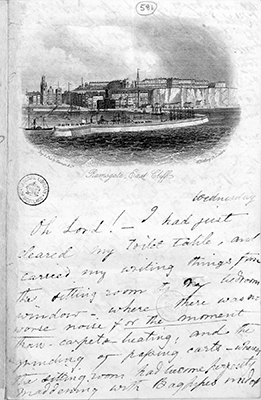 59b
Ramsgate, East Cliff.
Wednesday
Oh Lord! — I had just
cleared my toilet table, and
carried my writing things from
the sitting room to my bedroom
window — where there was no
worse noise for the moment
than carpet-beating, and the
grinding of passing carts — whereas
the sitting room had become perfectly
maddening with Bagpipes under